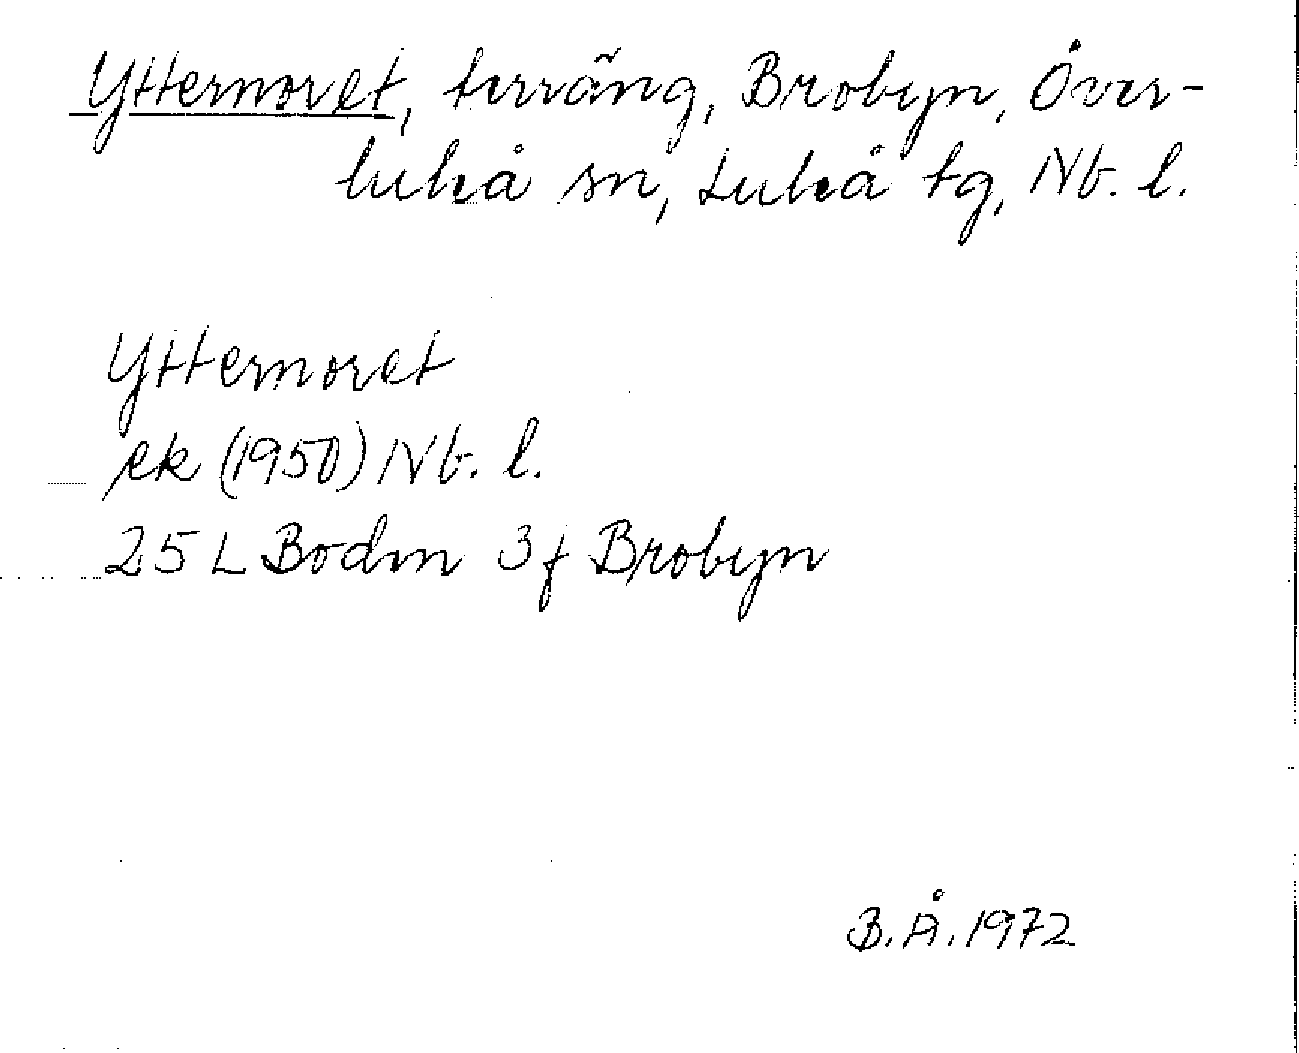 Yttermoret, terräng, Brobyn, Över-
luleå sn, Luleå tg, Nb. l.
Yttermoret
ek (1950) Nb. l.
25 L Boden 3f Brobyn
B.Å. 1972